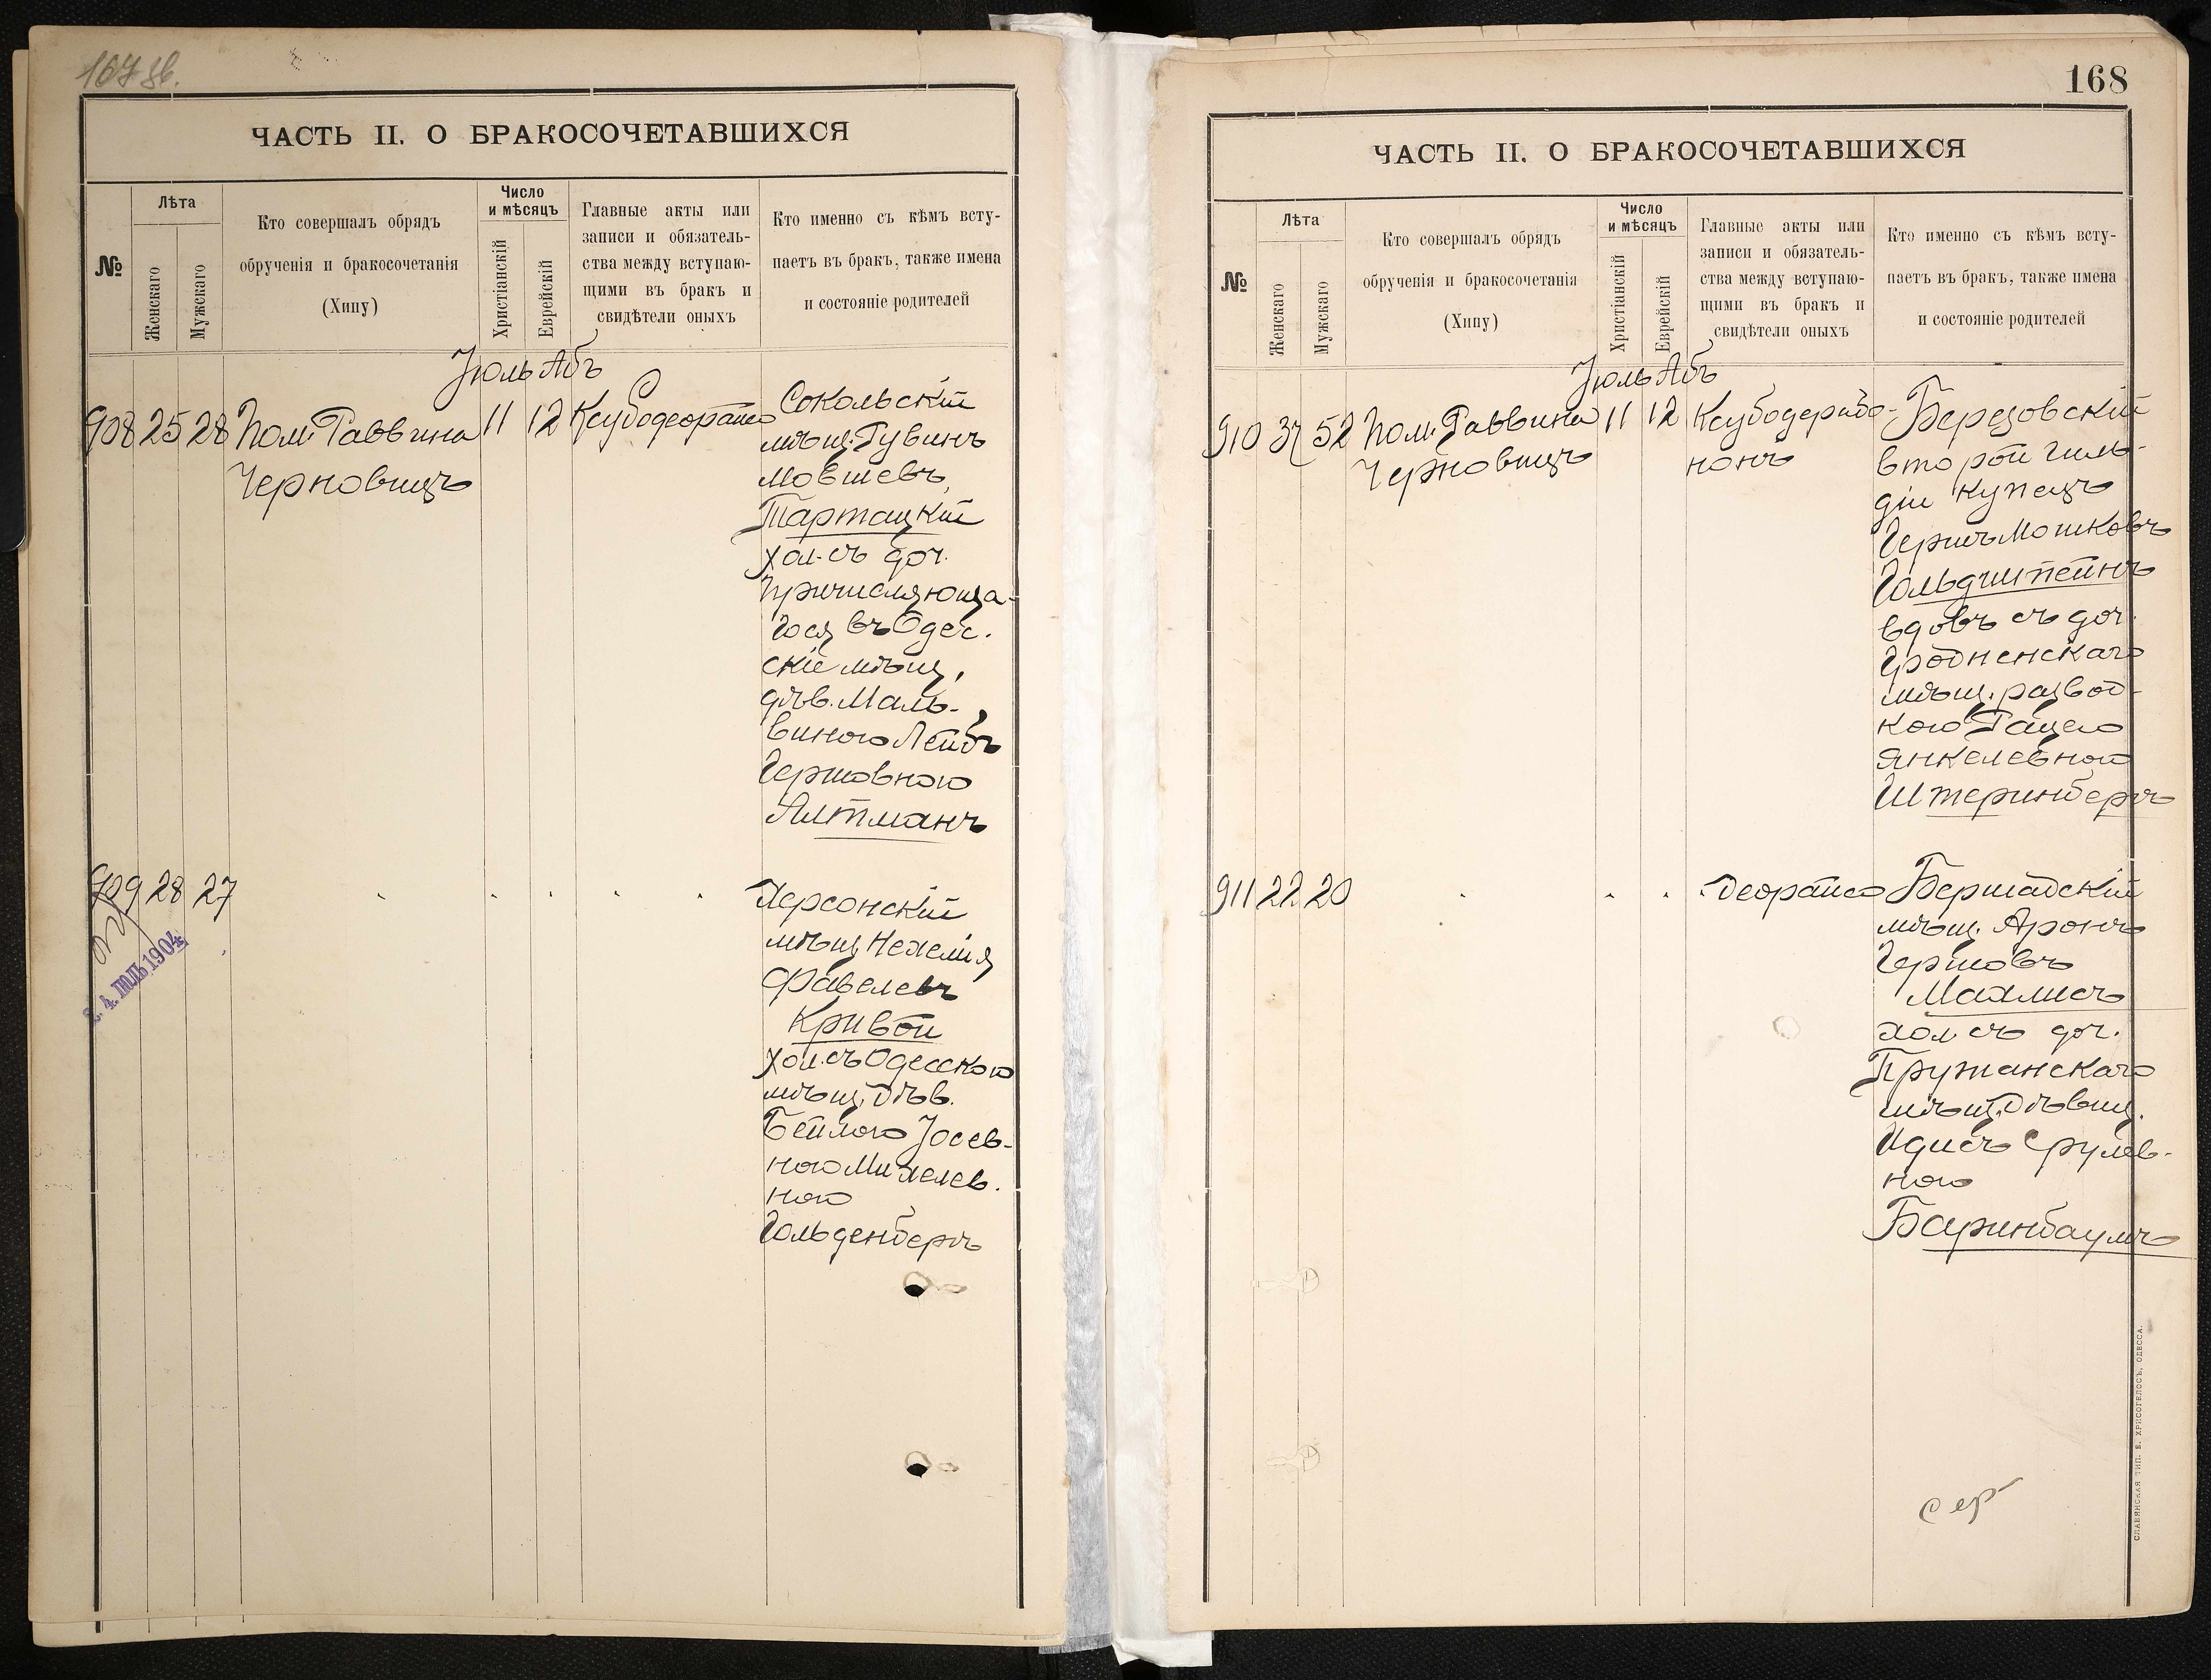 167 зв.
ЧАСТЬ II. О БРАКОСОЧЕТАВШИХСЯ
№
Лѣта
Женскаго
Мужскаго
Кто совершалъ обрядъ
обрученія и бракосочетанія
(Хипу)
Число
и мѣсяцъ
Христіанскій
Еврейскій
Главные акты или
записи и обязатель-
ства между вступаю-
щими въ бракъ и
свидѣтели оныхъ
Кто именно съ кѣмъ всту-
паетъ въ бракъ, также имена
и состояніе родителей
Іюль Абъ
908 25 28 Пом. Раввина 11 12 Ксубодеорайсо
Черновицъ
Сокольскій
мѣщ. Рувинъ
Мовшевъ
Тартацкій
хол. съ доч.
причисляюща-
гося въ Одес.
скіе мѣщ,
дѣв. Маль-
виною Лейбъ
Гершовною
Алтманъ
909 28 27
Херсонскій
мѣщ Нехемія
Файвелевъ
Кривой
хол. съ Одесскою
мѣщ. дѣв.
Бейлою Іосев-
ною Михелев.
ною
Гольденбергъ
2 4. ІЮЛЬ 1904
168
ЧАСТЬ II. О БРАКОСОЧЕТАВШИХСЯ
№
Лѣта
Женскаго
Мужскаго
Кто совершалъ обрядъ
обрученія и бракосочетанія
(Хипу)
Число
и мѣсяцъ
Христіанскій
Еврейскій
Главные акты или
записи и обязатель-
ства между вступаю-
щими въ бракъ и
свидѣтели оныхъ
Кто именно съ кѣмъ всту-
паетъ въ бракъ, также имена
и состояніе родителей
Іюль Абъ
910 37 52 Пом. Раввина 11 12 Ксубодерабо-
Черновицъ нонъ
Березовскій
второй гиль-
діи купецъ
Гершъ Мошковъ
Гольдштейнъ
вдовъ съ доч.
Гродненскаго
мѣщ. развод-
кою Рацею
Янкелевною
Штеринбергъ
911 22 20 деорайсо
Бершадскій
мѣщ. Аронъ
Гершовъ
Махлисъ
хол съ доч.
Пружанскаго
мѣщ. дѣвиц.
Идисъ Срулев-
ною
Баринбаумъ
СЛАВЯНСКАЯ ТИП. Е. ХРИСОГЕЛОСЪ, ОДЕССА.